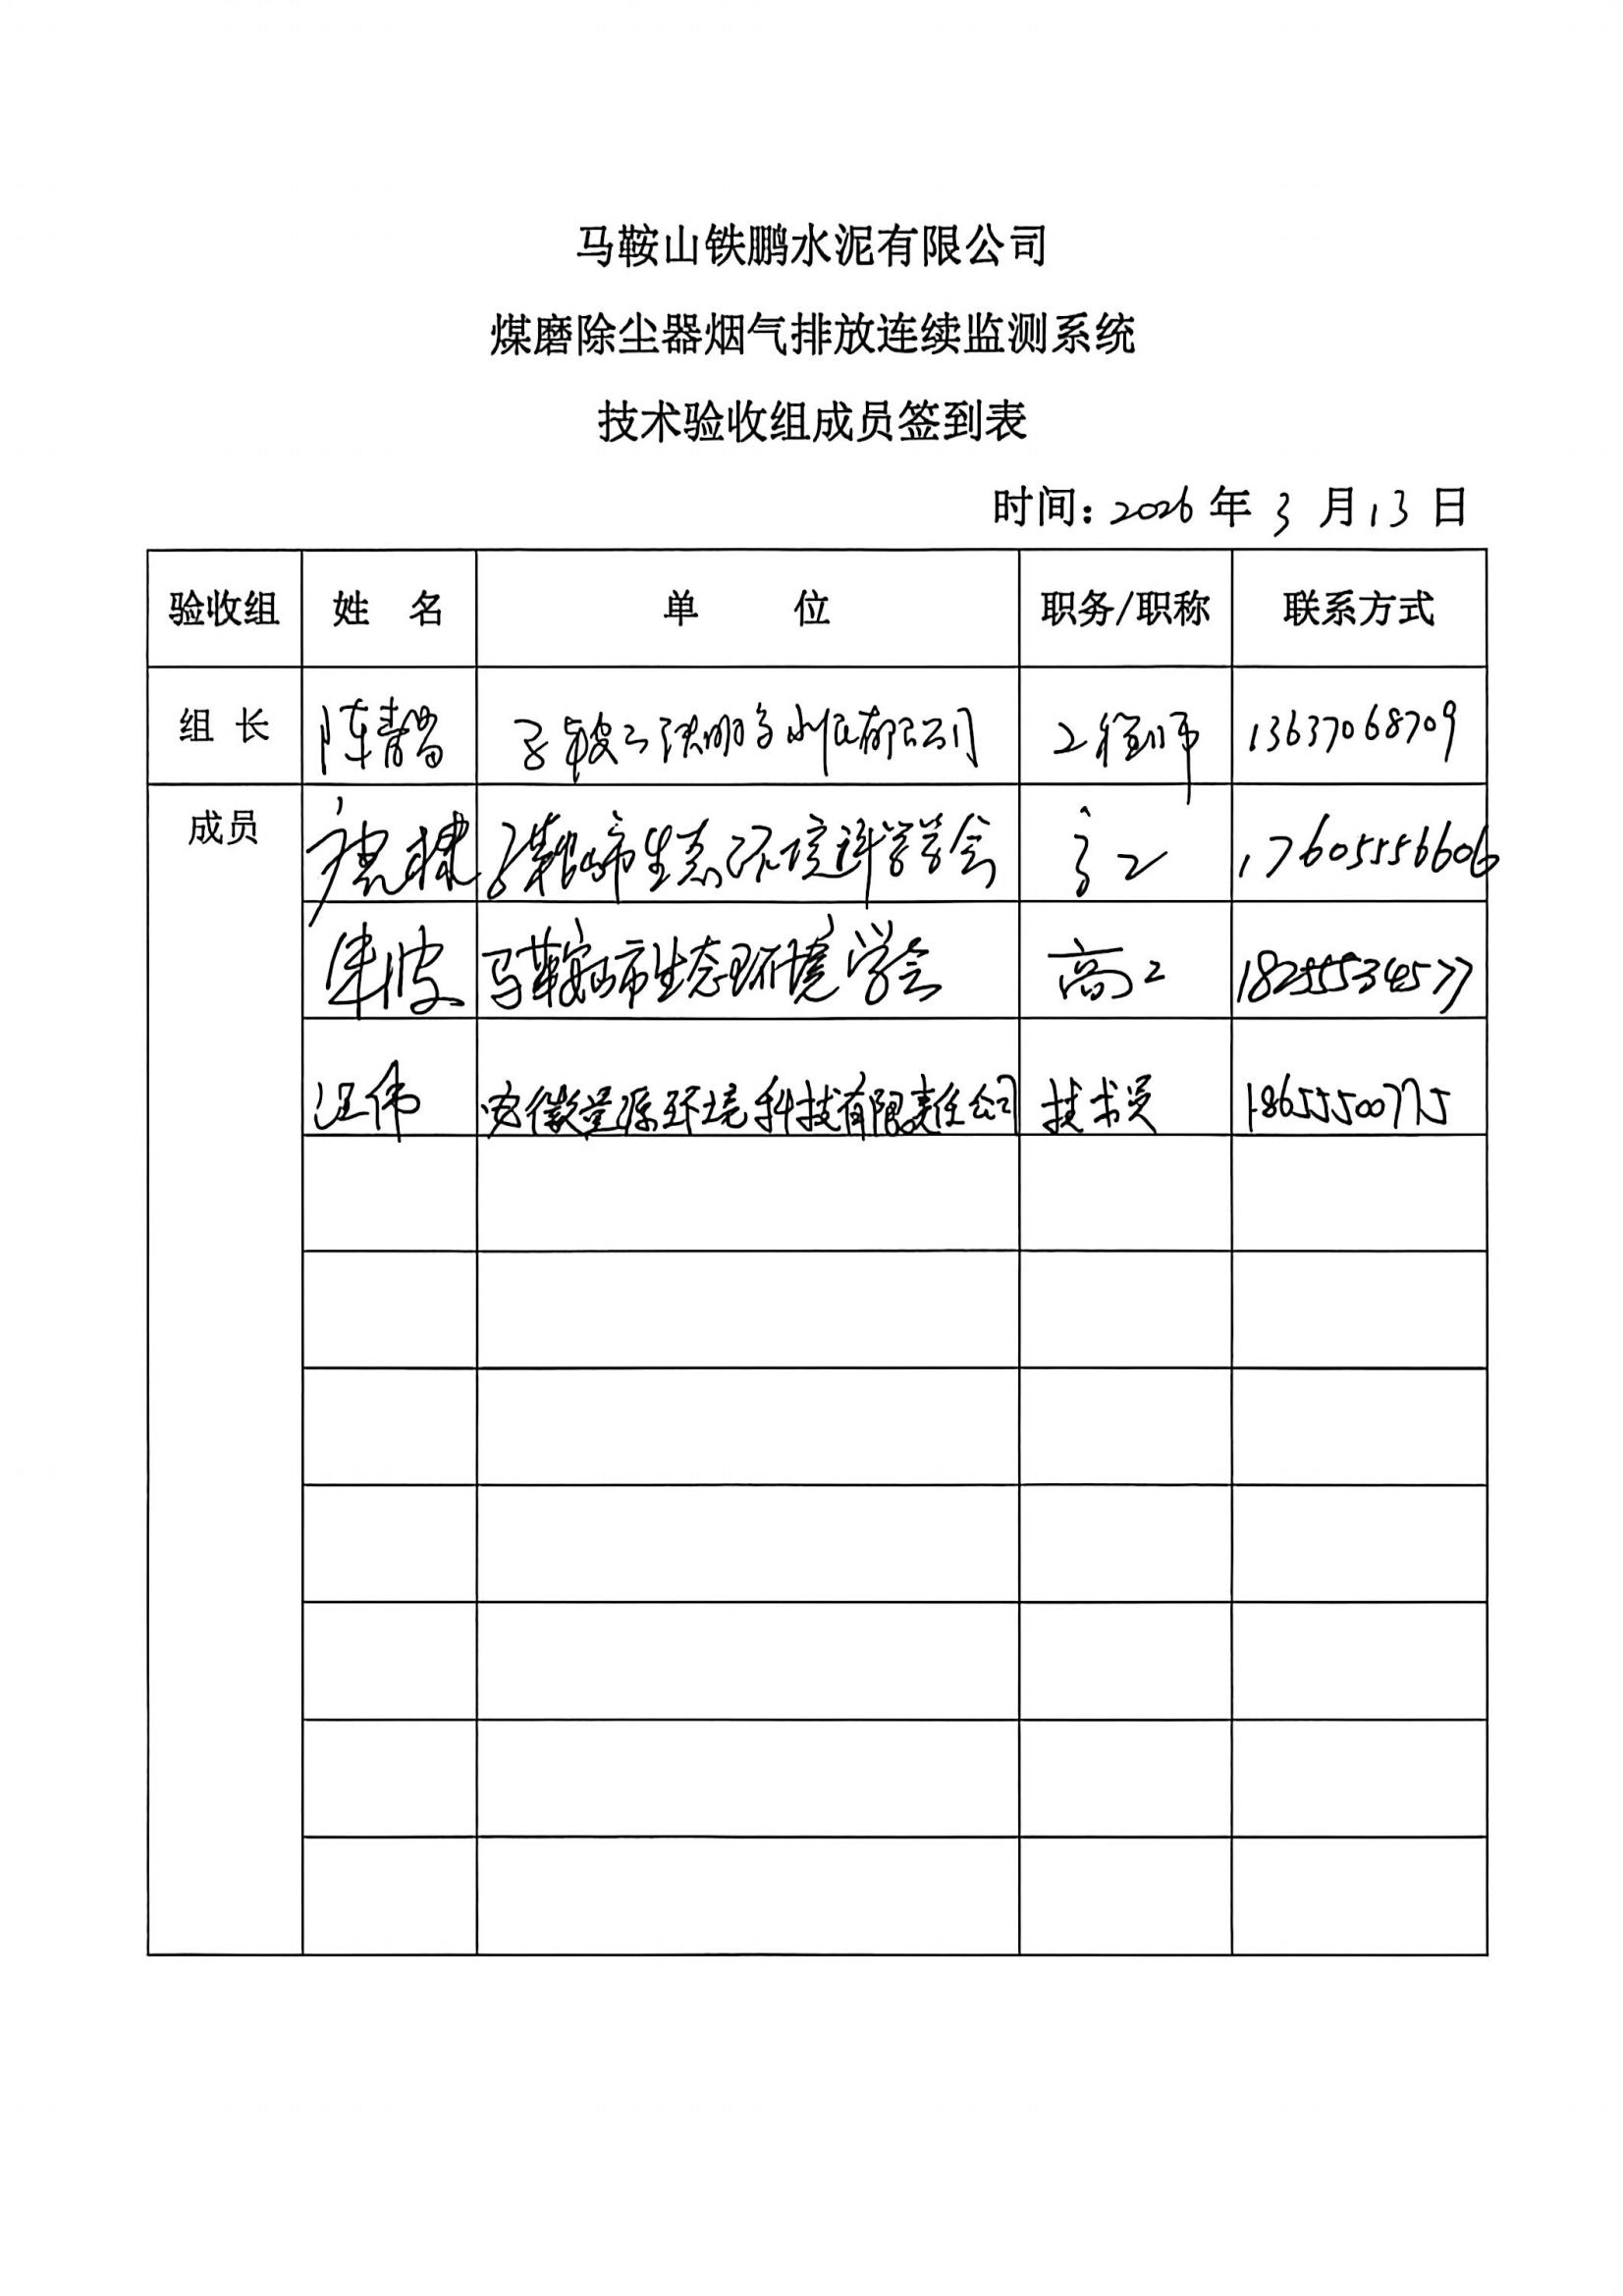 马鞍山铁鹏水泥有限公司
煤磨除尘器烟气排放连续监测系统
技术验收组成员签到表
时间：2026 年 3 月 13 日
验收组 姓 名 单 位 职务/职称 联系方式
组 长 陈 马鞍山铁鹏水泥有限公司 工程师 13637068709
成员 马鞍山市生态环境科学学会 高工 17605556606
朱波 马鞍山市生态环境学会 高工 18255534577
汪伟 安徽 源环境科技有限责任公司 技术员 18655500775